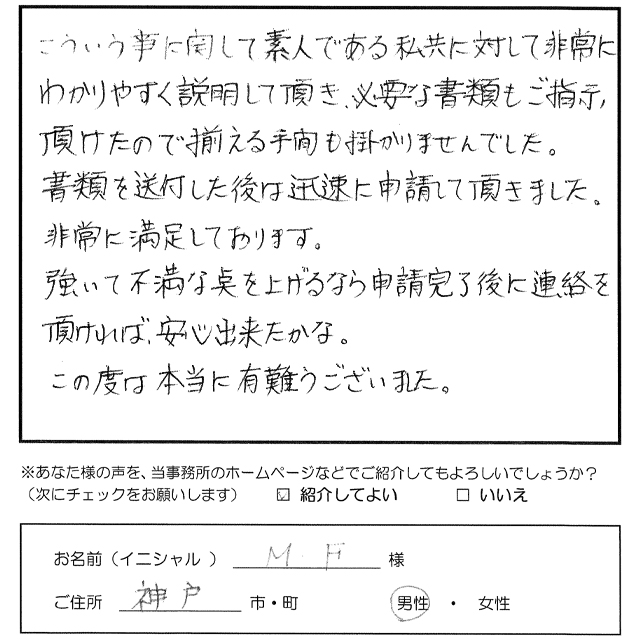 こういう事に関して素人である私共に対して非常に
わかりやすく説明して頂き、必要な書類もご指示
頂けたので揃える手間も掛かりませんでした。
書類を送付した後は迅速に申請して頂きました。
非常に満足しております。
強いて不満な点を上げるなら申請完了後に連絡を
頂ければ、安心出来たかな。
この度は本当に有難うございました。
※あなた様の声を、当事務所のホームページなどでご紹介してもよろしいでしょうか?
(次にチェックをお願いします) ☑ 紹介してよい □ いいえ
お名前(イニシャル ) M.F 様
ご住所 神戸 市・町 男性 ・ 女性